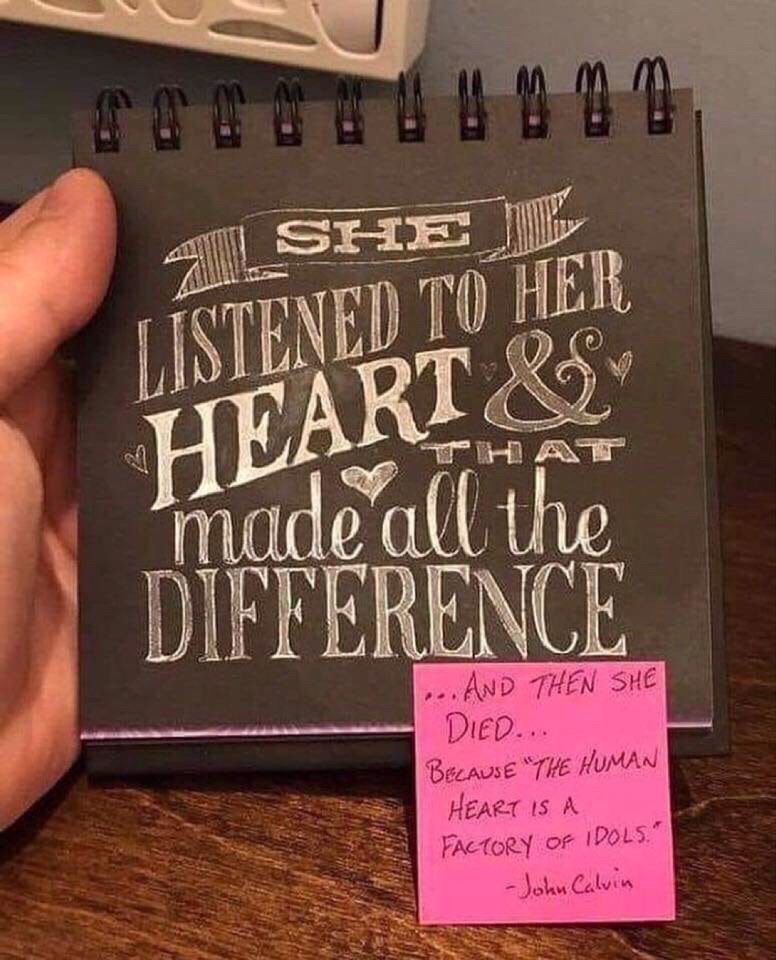 SHE
LISTENED TO HER
HEART &
THAT
made all the
DIFFERENCE
...AND THEN SHE
DIED...
BECAUSE "THE HUMAN
HEART IS A
FACTORY OF IDOLS."
-John Calvin